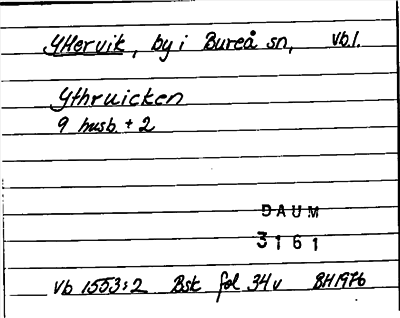 Yttervik, by i Bureå sn, Vb l.
Ythruicken
9 husb. + 2
DAUM
3161
Vb 1553:2 Bsk fol 34v BH1976